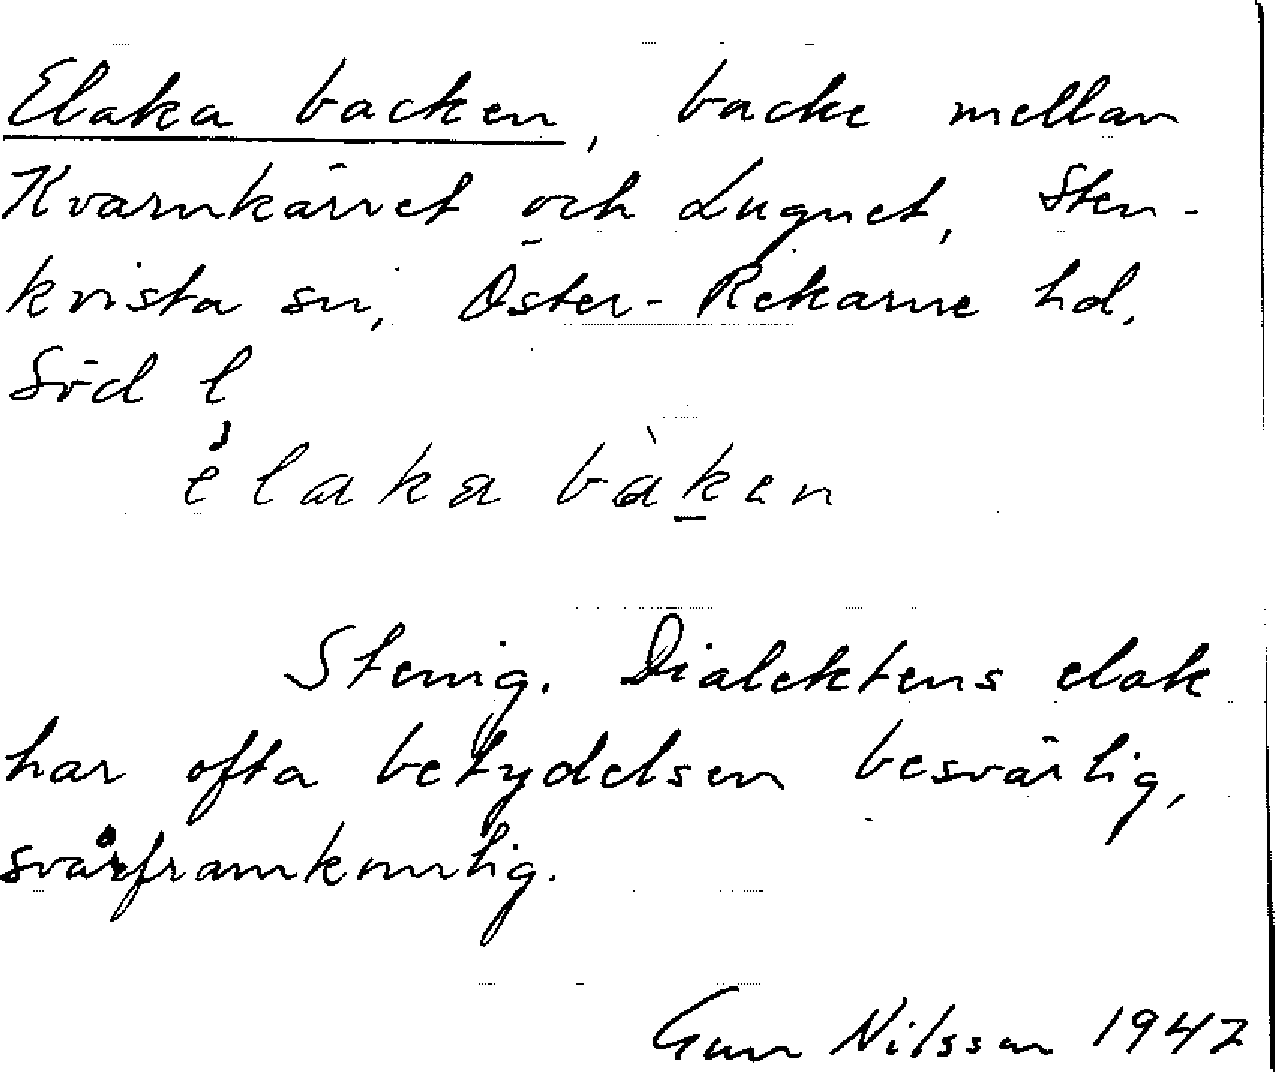 Elaka backen, backe mellan
Kvarnkärret och Lugnet, Sten-
kvista sn, Öster-Rekarne hd,
Söd l
élaka bàken
Stenig. Dialektens elak
har ofta betydelsen besvärlig,
svårframkomlig.
Gun Nilsson 1947